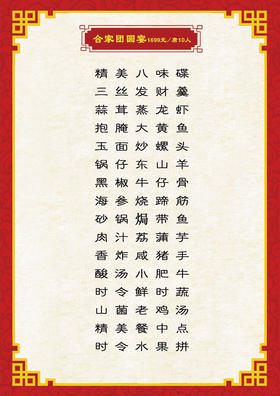 合家团圆宴1699元/席10人
精美八味碟
三丝发财羹
蒜茸蒸龙虾
抱腌大黄鱼
玉面炒螺头
锅仔东山羊
黑椒牛仔骨
海参烧蹄筋
砂锅焗带鱼
肉汁荔蒲芋
香炸咸猪手
酸汤小肥牛
时令鲜时蔬
山菌老鸡汤
精美餐中点
时令水果拼